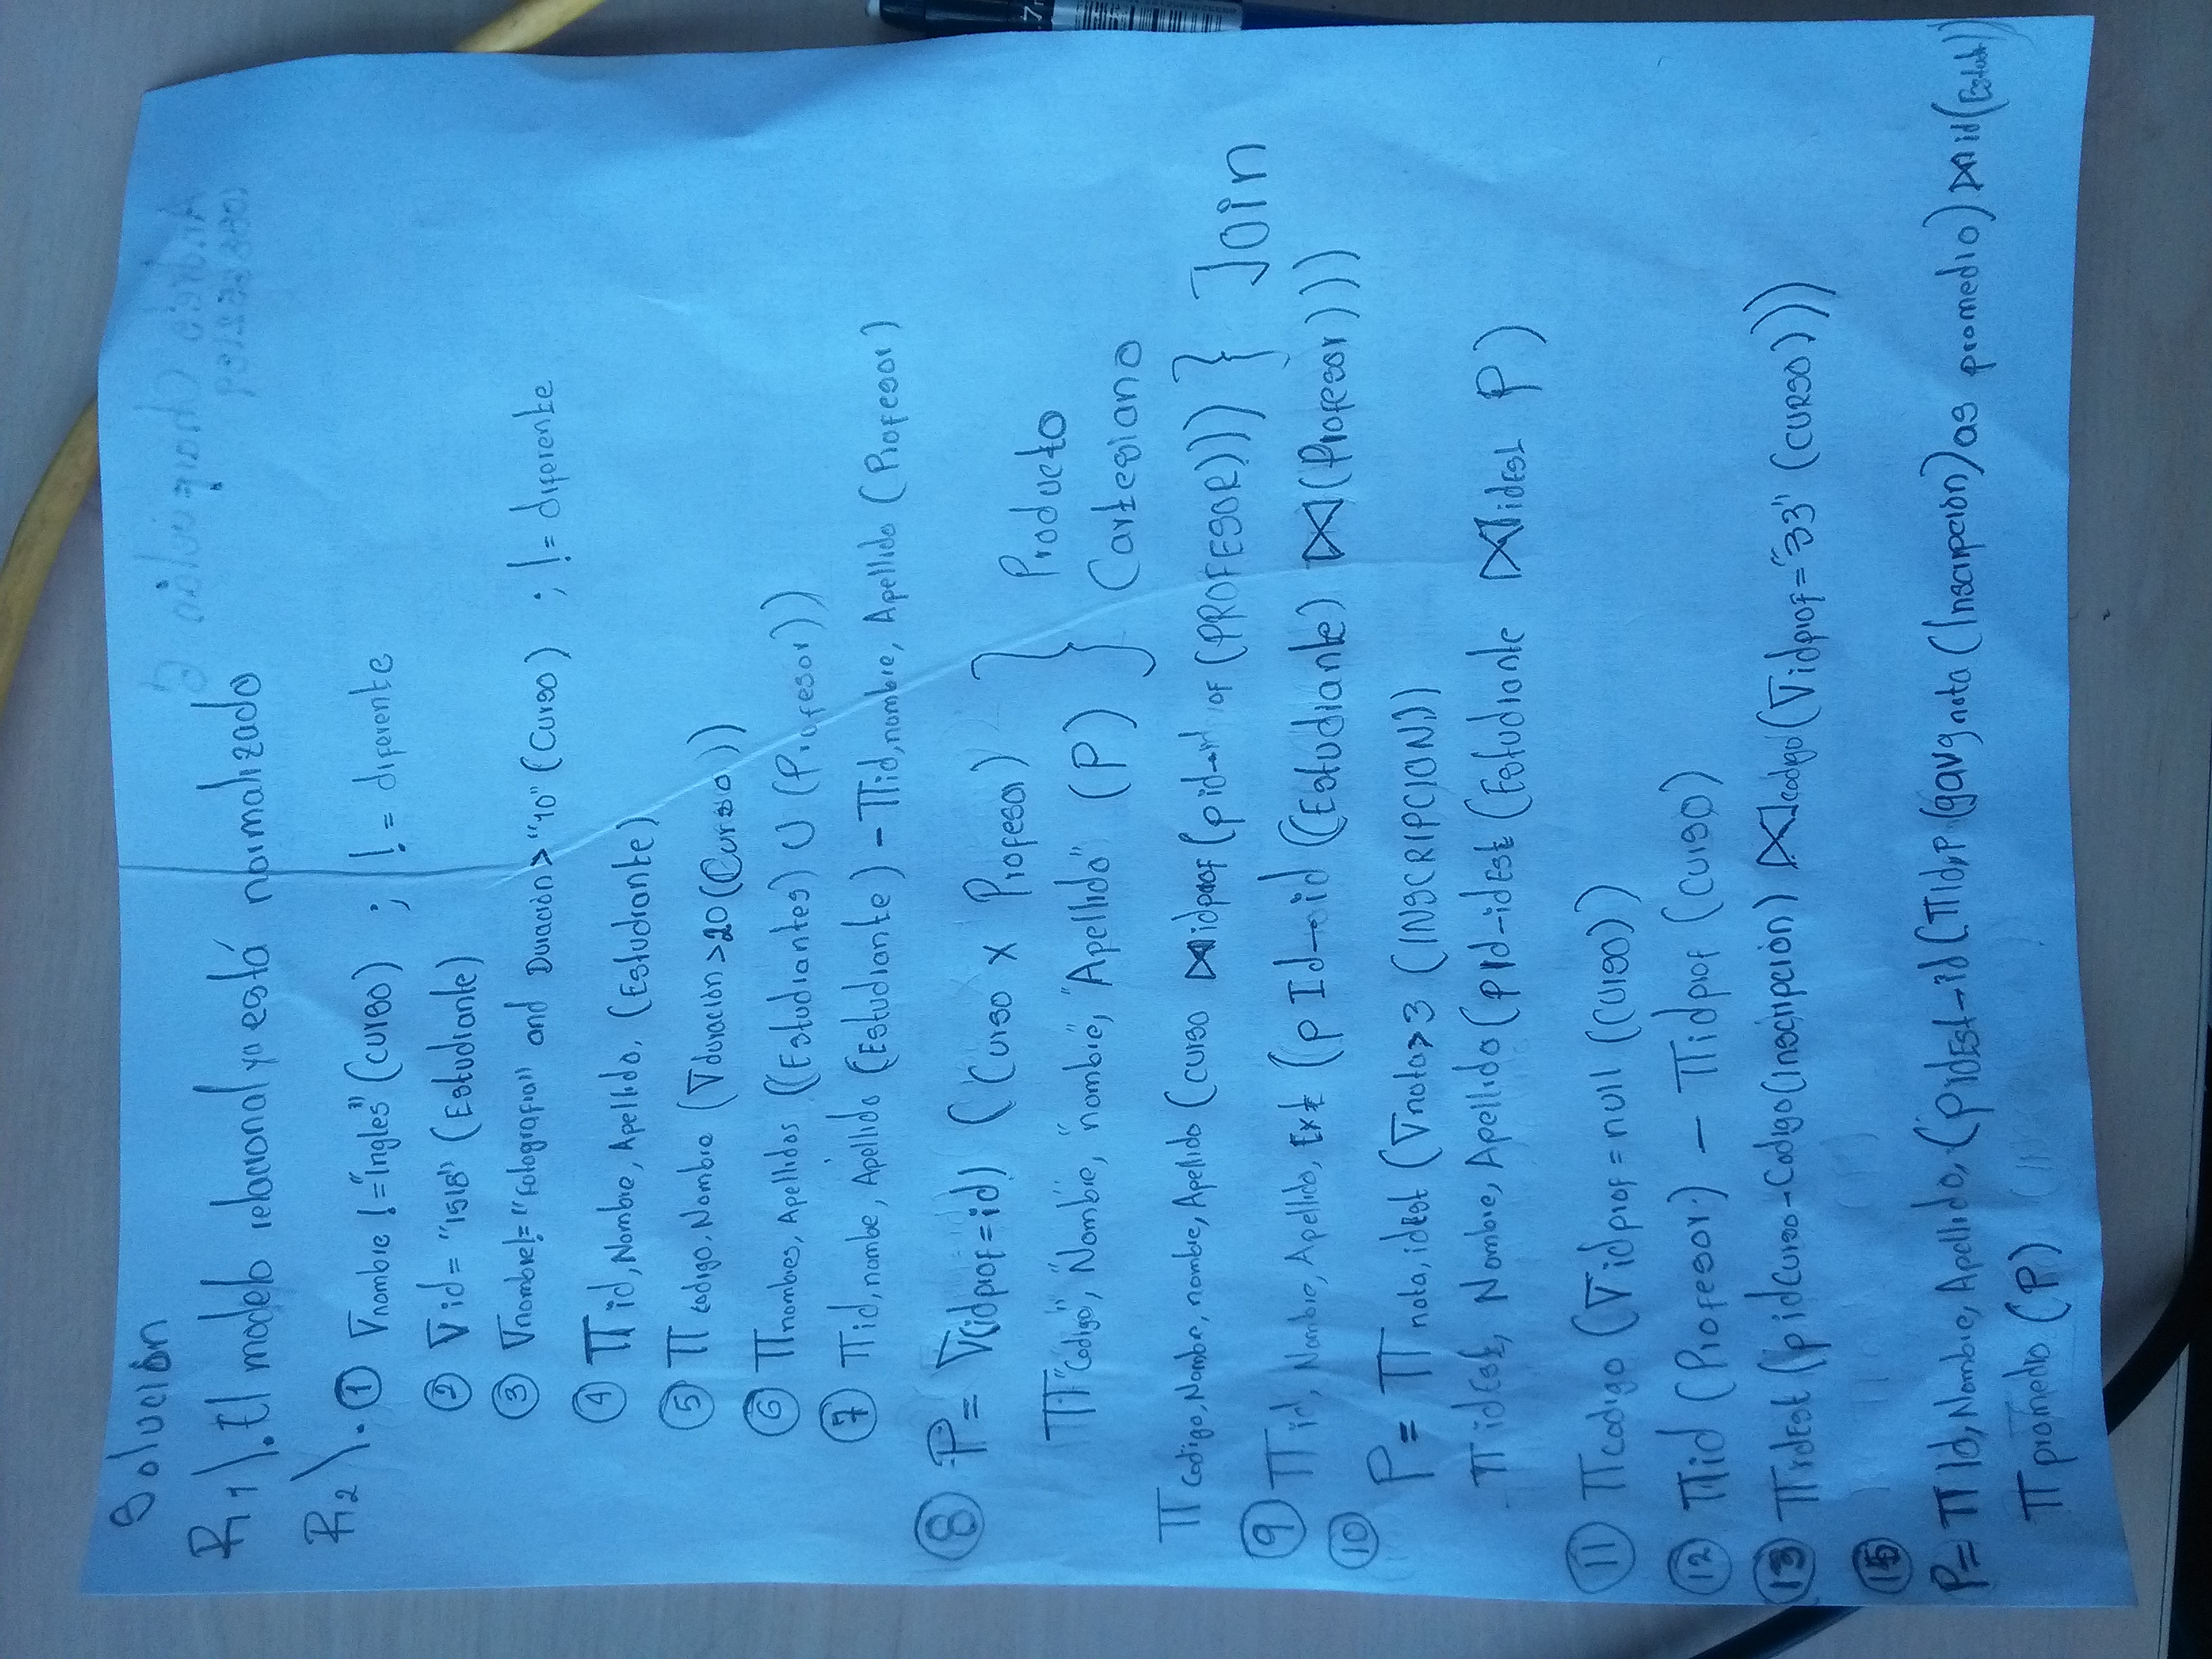 Solución
R1\. El modelo relacional ya está normalizado
R2\. ① σnombre != "ingles" (curso) ; != diferente
② σid = "1518" (Estudiante)
③ σnombre != "Fotografia" and Duración > "10" (Curso) ; != diferente
④ π id, Nombre, Apellido, (Estudiante)
⑤ π codigo, Nombre (σ duración > 20 (Curso))
⑥ π nombres, Apellidos ((Estudiantes) ∪ (Profesor))
⑦ π id, nombe, Apellido (Estudiante) - π id, nombre, Apellido (Profesor)
⑧ P = σ(idprof = id) (Curso x Profesor)
π "Codigo", "Nombre", "nombre", "Apellido" (P) } Producto Cartesiano
π Codigo, Nombre, nombre, Apellido (curso ⋈ idprof (ρ id→ of (PROFESOR))) } Join
⑨ π id, Nombre, Apellido, Ext (ρ Id→id ((Estudiante) ⋈ (Profesor)))
⑩
P = π nota, idEst (σ nota > 3 (INSCRIPCION))
π idEst, Nombre, Apellido (ρ Id→idEst (Estudiante ⋈ idEst P)
⑪ π codigo (σ idprof = null ((curso))
⑫ π id (Profesor) - π idprof (curso)
⑬ π idEst (ρ idCurso→Codigo (Inscripción) ⋈ codigo (σ idprof = "33" (CURSO)))
⑮
P = π Id, Nombre, Apellido, (ρ idEst→id (π Id, P (gavg nota (Inscripción) as promedio) ⋈ id (Estud))
π promedio (P)